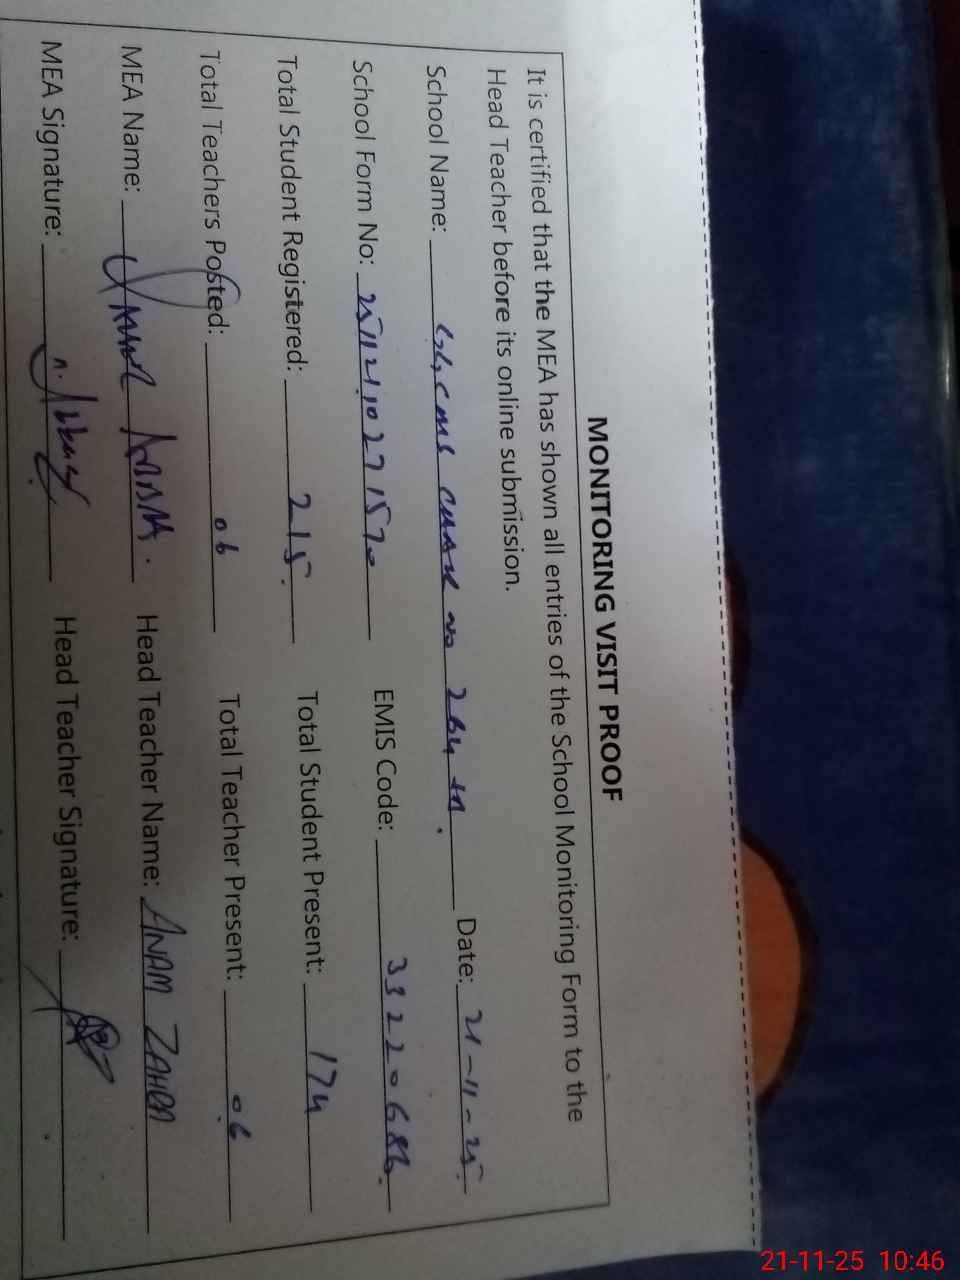 MONITORING VISIT PROOF
It is certified that the MEA has shown all entries of the School Monitoring Form to the
Head Teacher before its online submission.
School Name: GGCMS CHAK NO 264 Date: 21-11-25
School Form No: EMIS Code: 332206
Total Student Registered: 215 Total Student Present: 174
Total Teachers Posted: 06 Total Teacher Present: 06
MEA Name: Head Teacher Name: ANAM ZAHRA
MEA Signature: Head Teacher Signature:
21-11-25 10:46